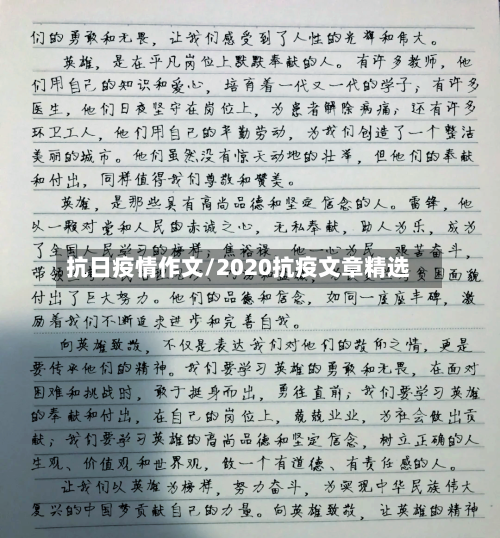 们的勇敢和无畏，让我们感受到了人性的光辉和伟大。
英雄，是在平凡岗位上默默奉献的人。有许多教师，他
们用自己的知识和爱心，培育着一代又一代的学子；有许多
医生，他们日夜坚守在岗位上，为患者解除病痛；还有许多
环卫工人，他们用自己的辛勤劳动，为我们创造了一个整洁
美丽的城市。他们虽然没有惊天动地的壮举，但他们的奉献
和付出，同样值得我们尊敬和赞美。
英雄，是那些具有高尚品德和坚定信念的人。雷锋，他
以一颗对党和人民的赤诚之心，无私奉献，助人为乐，成为
了全国人民学习的榜样；焦裕禄，他一心为民，艰苦奋斗，
抗日疫情作文/2020抗疫文章精选
带领 贫困面貌
付出了巨大努力。他们的品德和信念，如同一座座丰碑，激
励着我们不断追求进步和完善自我。
向英雄致敬，不仅是表达我们对他们的敬仰之情，更是
要传承他们的精神。我们要学习英雄的勇敢和无畏，在面对
困难和挑战时，敢于挺身而出，勇往直前；我们要学习英雄
的奉献和付出，在自己的岗位上，兢兢业业，为社会做出贡
献；我们要学习英雄的高尚品德和坚定信念，树立正确的人
生观、价值观和世界观，做一个有道德、有责任感的人。
让我们以英雄为榜样，努力奋斗，为实现中华民族伟大
复兴的中国梦贡献自己的力量。向英雄致敬，让英雄的精神